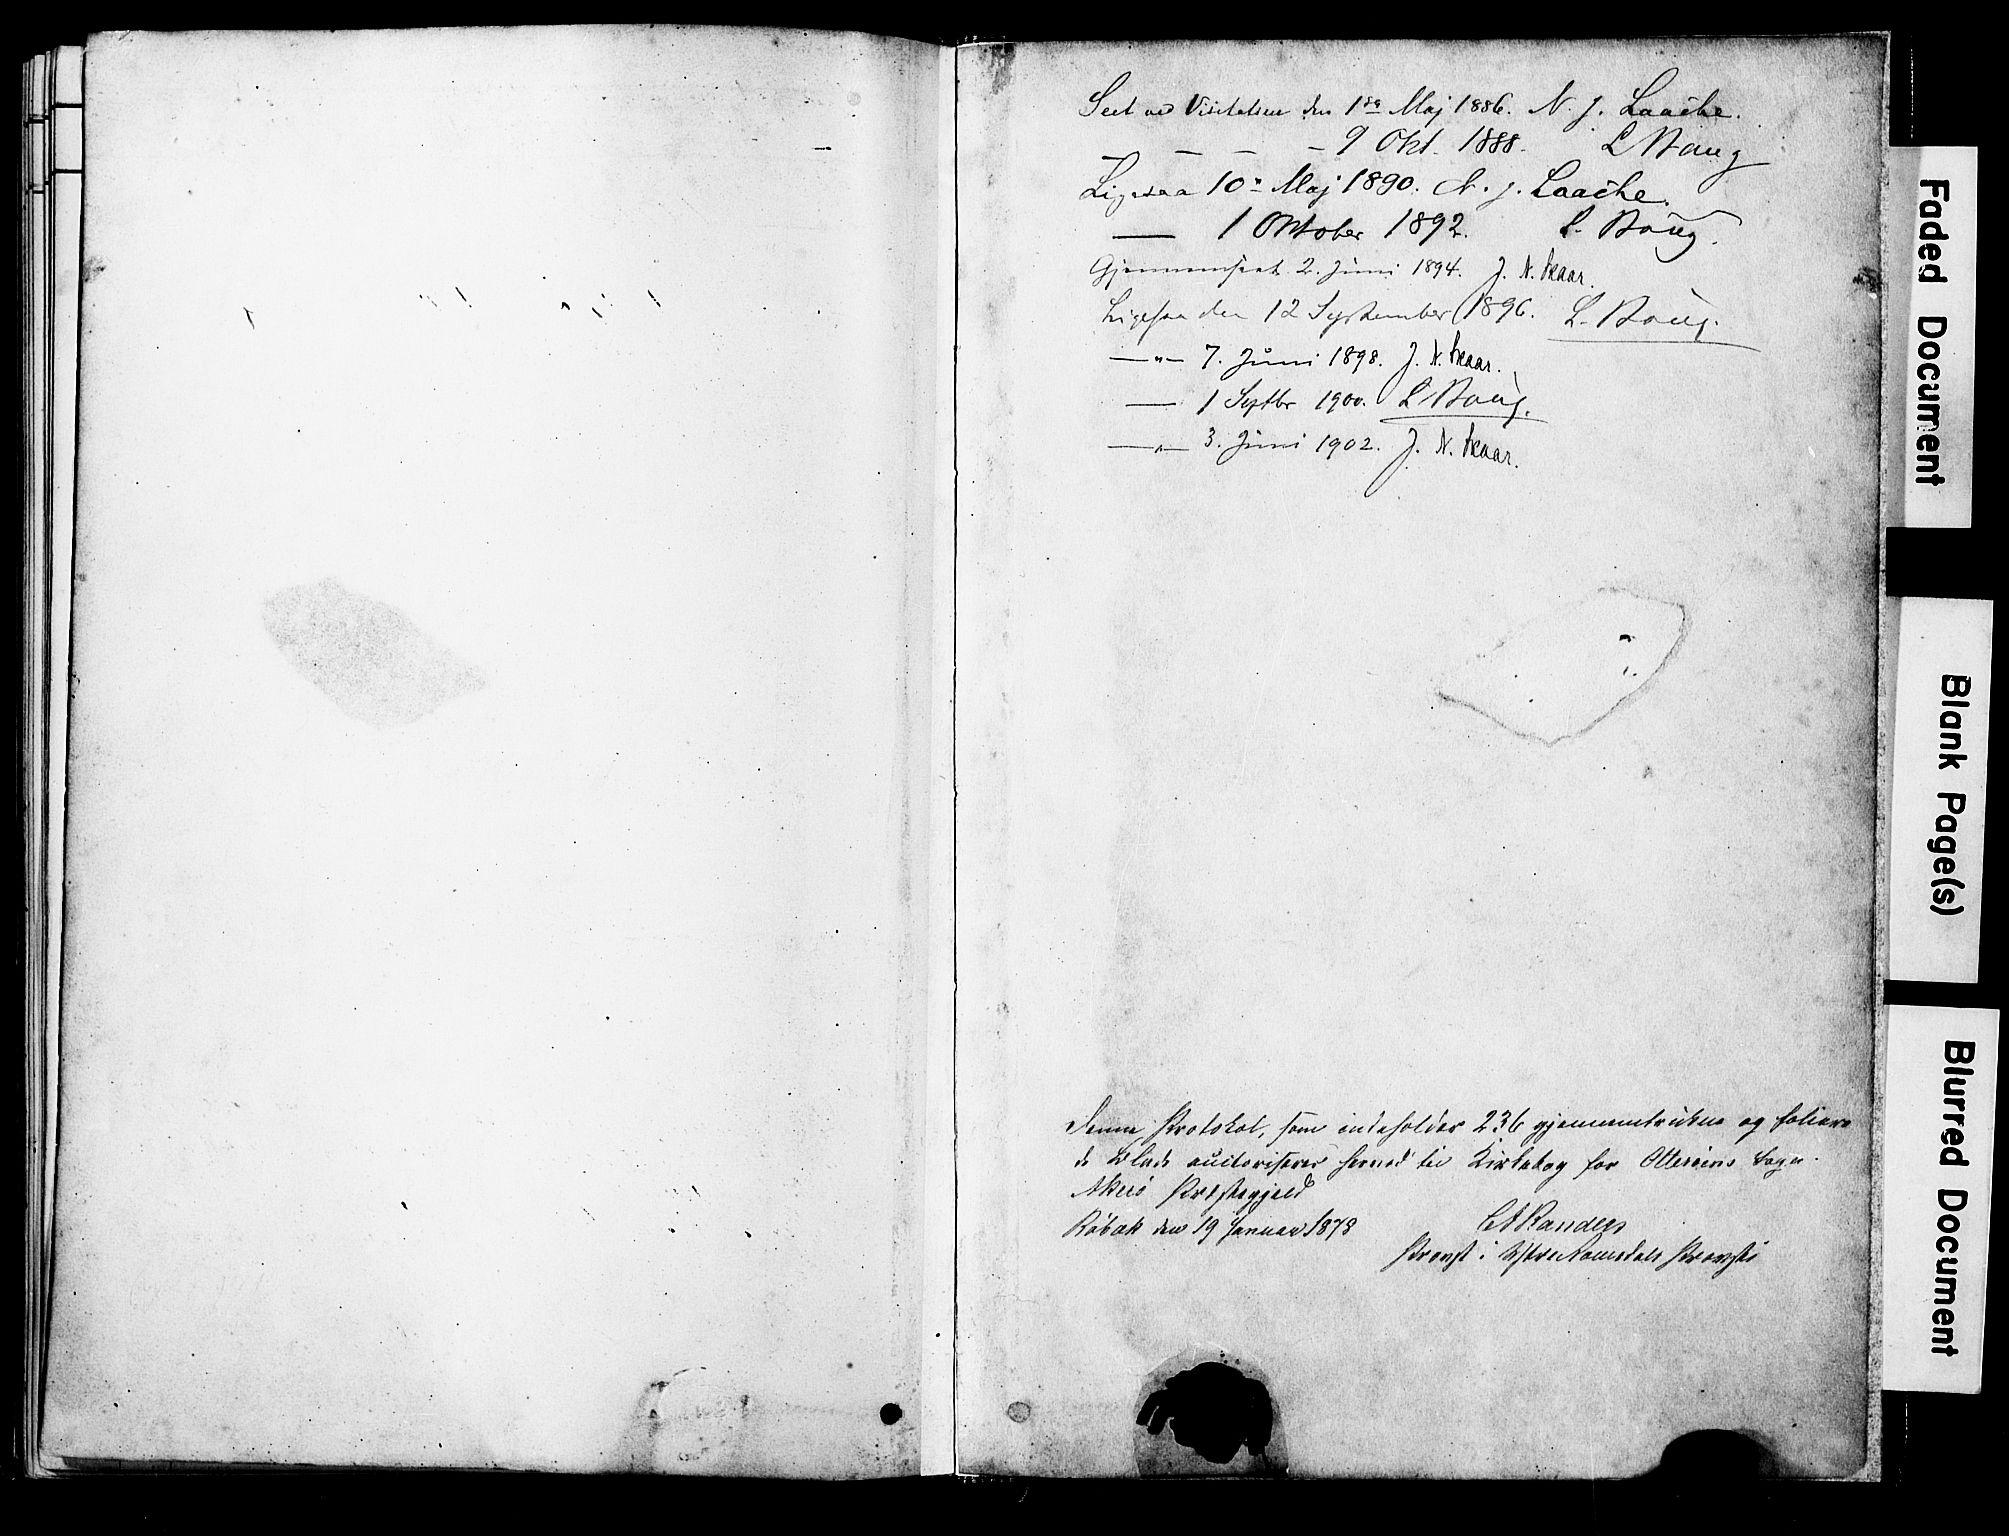 Seet ved Visitatsen den 18de Maj 1886. N. J. Laache.
— — — — 9 Okt. 1888. L Haug
Ligesaa 10de Maj 1890. N. J. Laache.
— 1 Oktober 1892. L. Haug.
Gjennemseet 2. Juni 1894. J. N. Skaar.
Ligesaa den 12 September 1896. L. Haug.
—"— 7. Juni 1898. J. N. Skaar.
— 1 Septbr 1900. L Haug.
—"— 3. Juni 1902. J. N. Skaar.
Denne Protokol, som indeholder 236 gjennemtrukne og foliere
de Blade auctoriseres herved til Kirkebog for Otterøens Sogn
Akerø Præstegjeld
Røbæk den 19 Januar 1878
Randers
Provst i Ydtre Romsdals Provsti
Faded Document
Blank Page(s)
Blurred Document